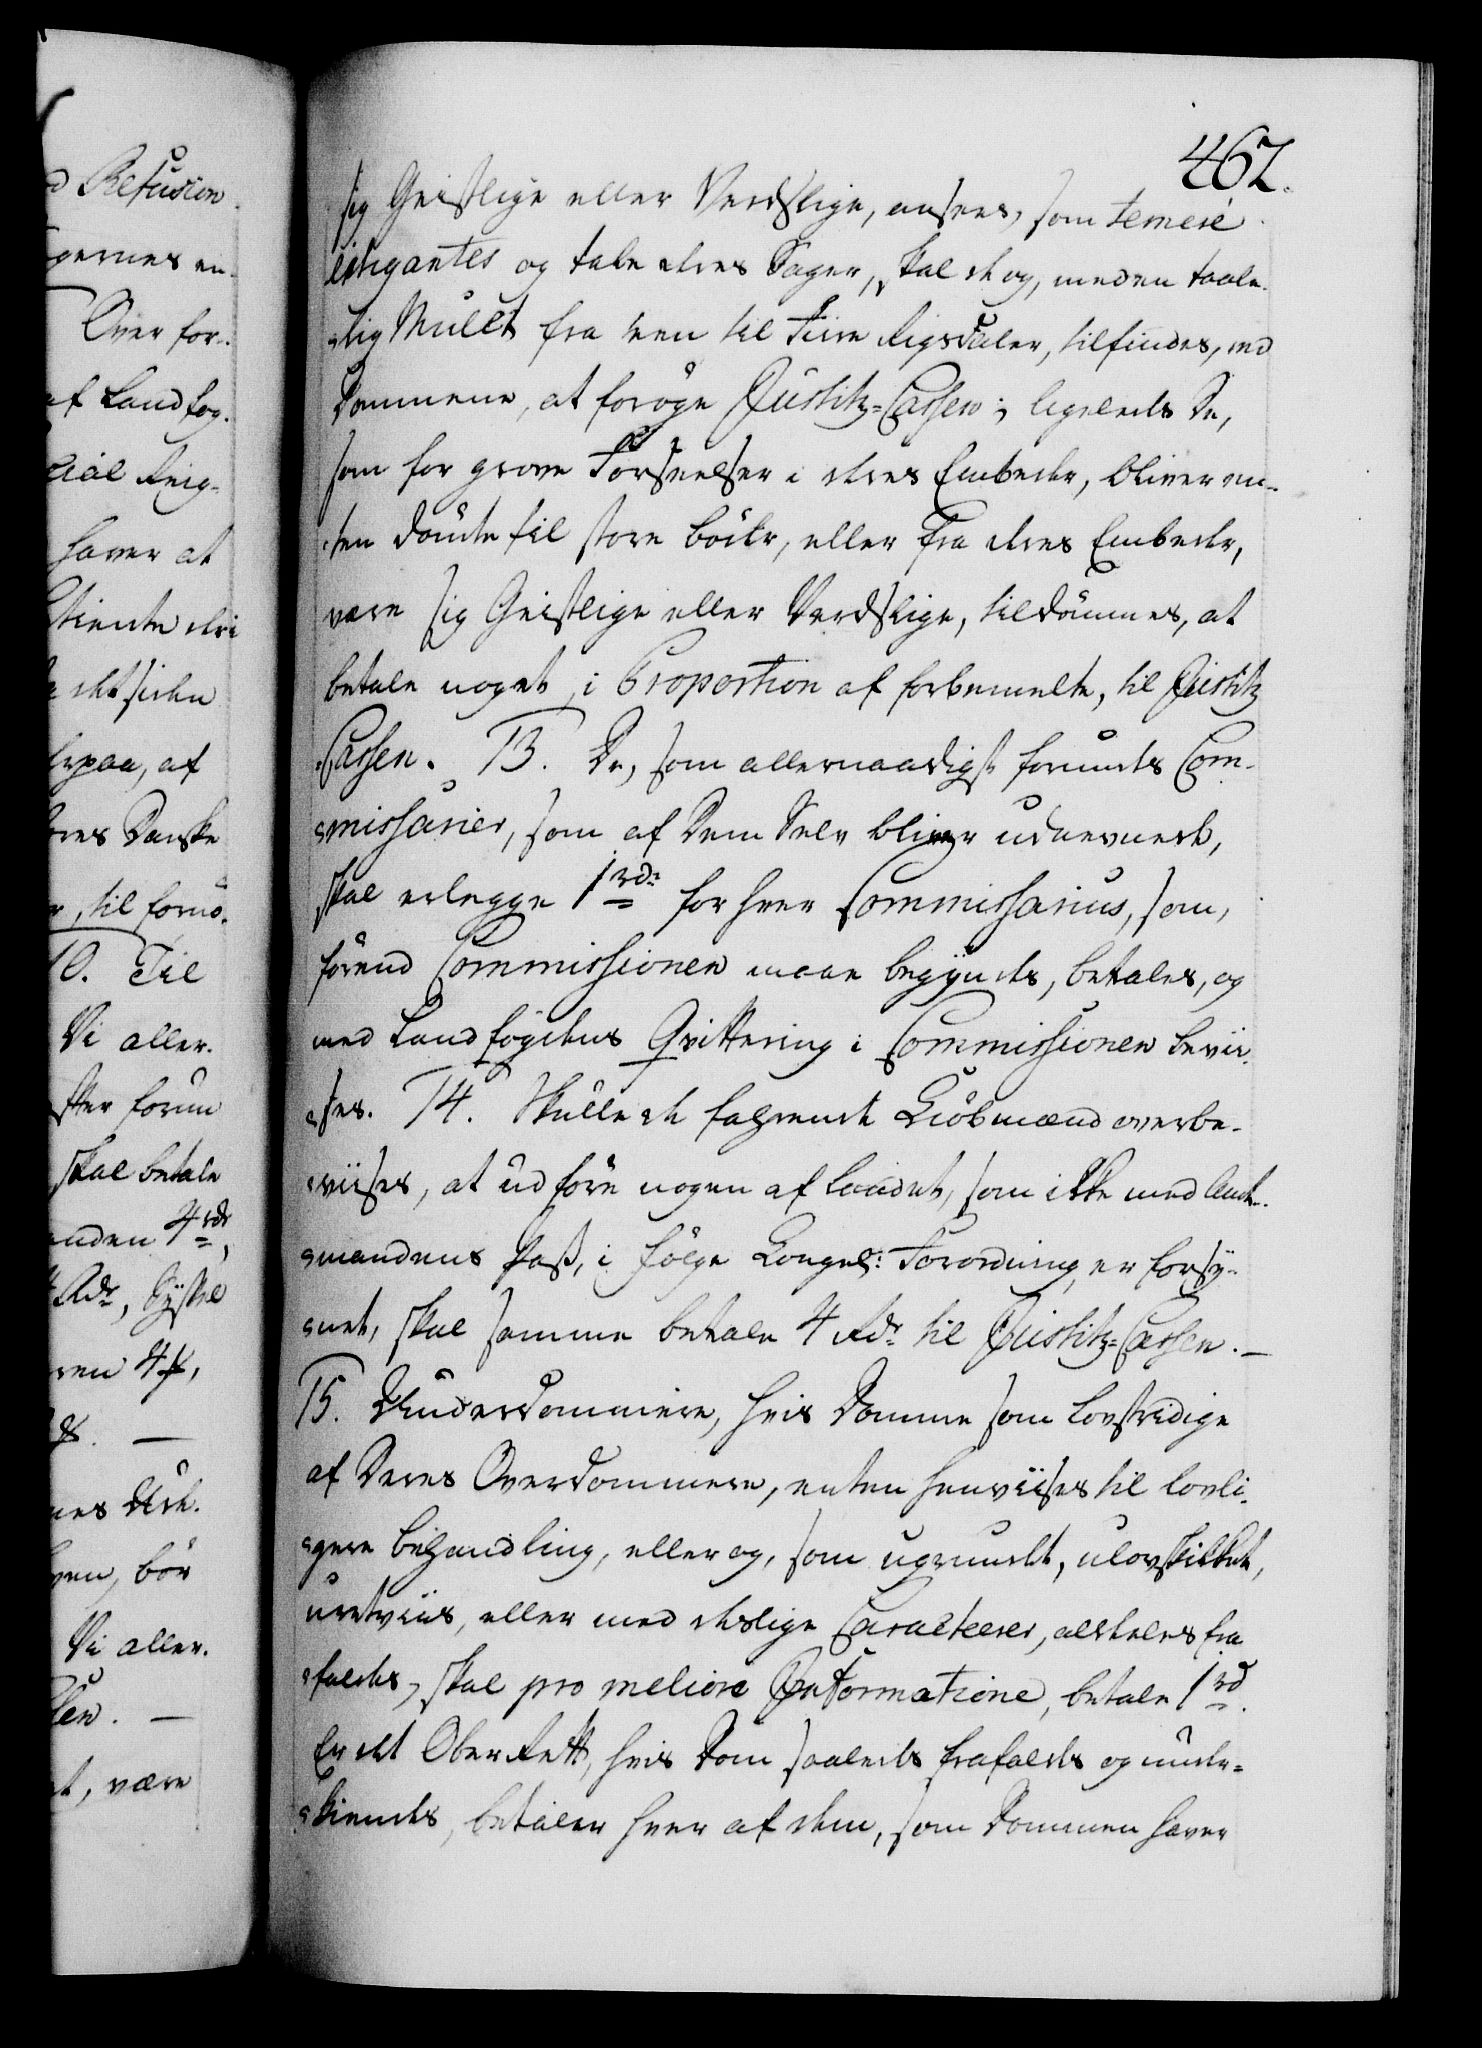 462.
sig Geistlige eller Verdslige, ansees, som temerè
litigantes og tabe deres Sager, skal de og, med en taale¬
lig Mulct fra een til Fiire Rigsdaler, tilfindes, ved
Dommene, at forøge Justitz-Cassen; ligeleeds De,
som for grove Forseelser i deres Embeder, bliver en¬
ten dømte til store Bøder, eller fra deres Embeder,
være sig Geistlige eller Verdslige, tildømmes, at
betale noget, i Proportion af forbemelte, til Justitz
Cassen. 13. De, som allernaadigst forundes Com¬
missarier, som af Dem Selv bliver udnevnede,
skal erlegge 1 rd: for hver Commissarius, som,
førend Commissionen maae begyndes, betales, og
med Landfogdens Qvittering i Commissionen bevii¬
ses. 14. Skulle de farende Kiøbmænd overbe¬
viises, at udføre nogen af Landet, som ikke med Amt¬
mandens Pass, i følge Kongel: Forordning, er forsy¬
net, skal samme betale 4 Rdr til Justitz-Cassen. —
15. Underdommere, hvis Domme som lovstridige
af Deres Overdommere, enten henviises til lovli¬
gere behandling, eller og, som ugrundet, ulovskikket,
uretviis, eller med deslige Caracterer, aldeles fra
faldes, skal pro meliore Informatione, betale 1 rd.
Er det OberRett, hvis Dom saaledes frafaldes og unde¬
kiendes, betaler hver af dem, som Dommen haver
d Refusion
gernes en¬
Over for¬
af Landfog¬
haver at
det siden
erpaa, af
res Danske
r, til fornø¬
10. Til
Vi aller¬
skal betale
anden 4 rdr,
Rdr, Syssel
ven, bør
Vi aller¬
t, være